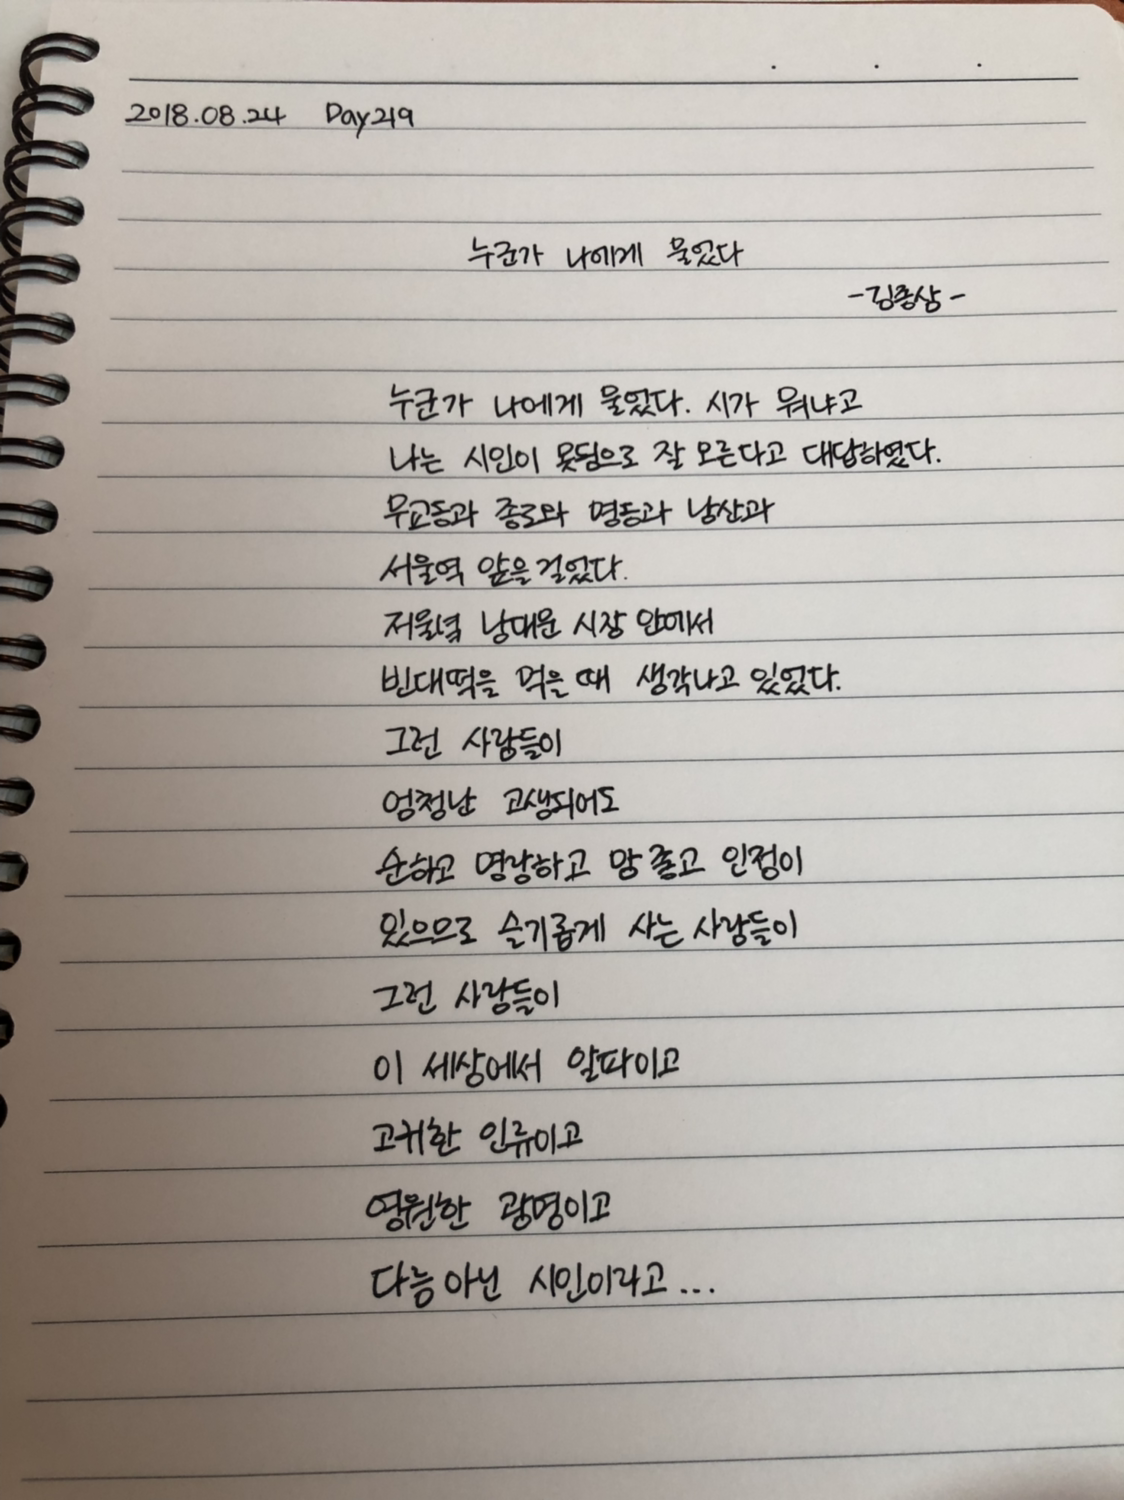 2018.08.24 Day219
누군가 나에게 물었다
-김종삼-
누군가 나에게 물었다. 시가 뭐냐고
나는 시인이 못됨으로 잘 모른다고 대답하였다.
무교동과 종로와 명동과 남산과
서울역 앞을 걸었다.
저물녘 남대문 시장 안에서
빈대떡을 먹을 때 생각나고 있었다.
그런 사람들이
엄청난 고생되어도
순하고 명랑하고 맘 좋고 인정이
있으므로 슬기롭게 사는 사람들이
그런 사람들이
이 세상에서 알파이고
고귀한 인류이고
영원한 광명이고
다름 아닌 시인이라고...